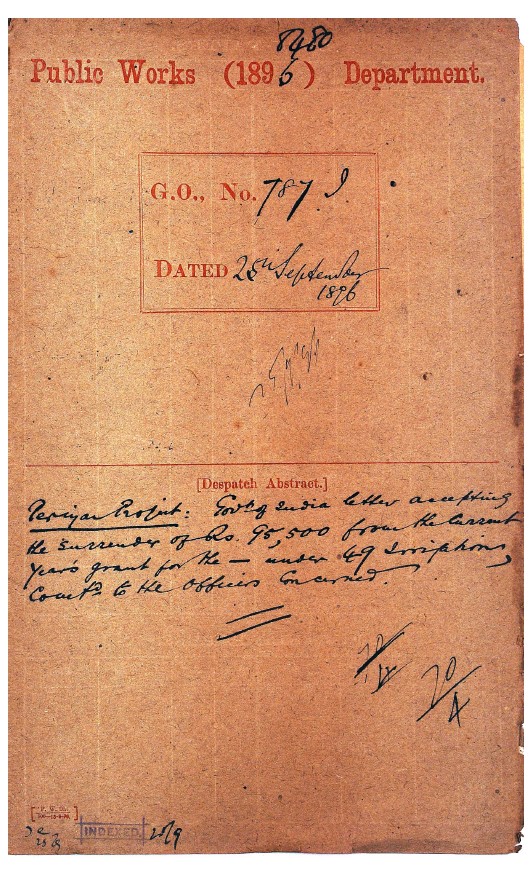 8480
Public Works (1896) Department.
G.O., No. 787 I.
DATED 25th September
1896
[Despatch Abstract.]
Periyar Project: Govt. of India letter accepting
the surrender of Rs. 95,500 from the current
year's grant for the — under 49 Irrigation,
Comtd. to the officers concerned.
20/4
INDEXED